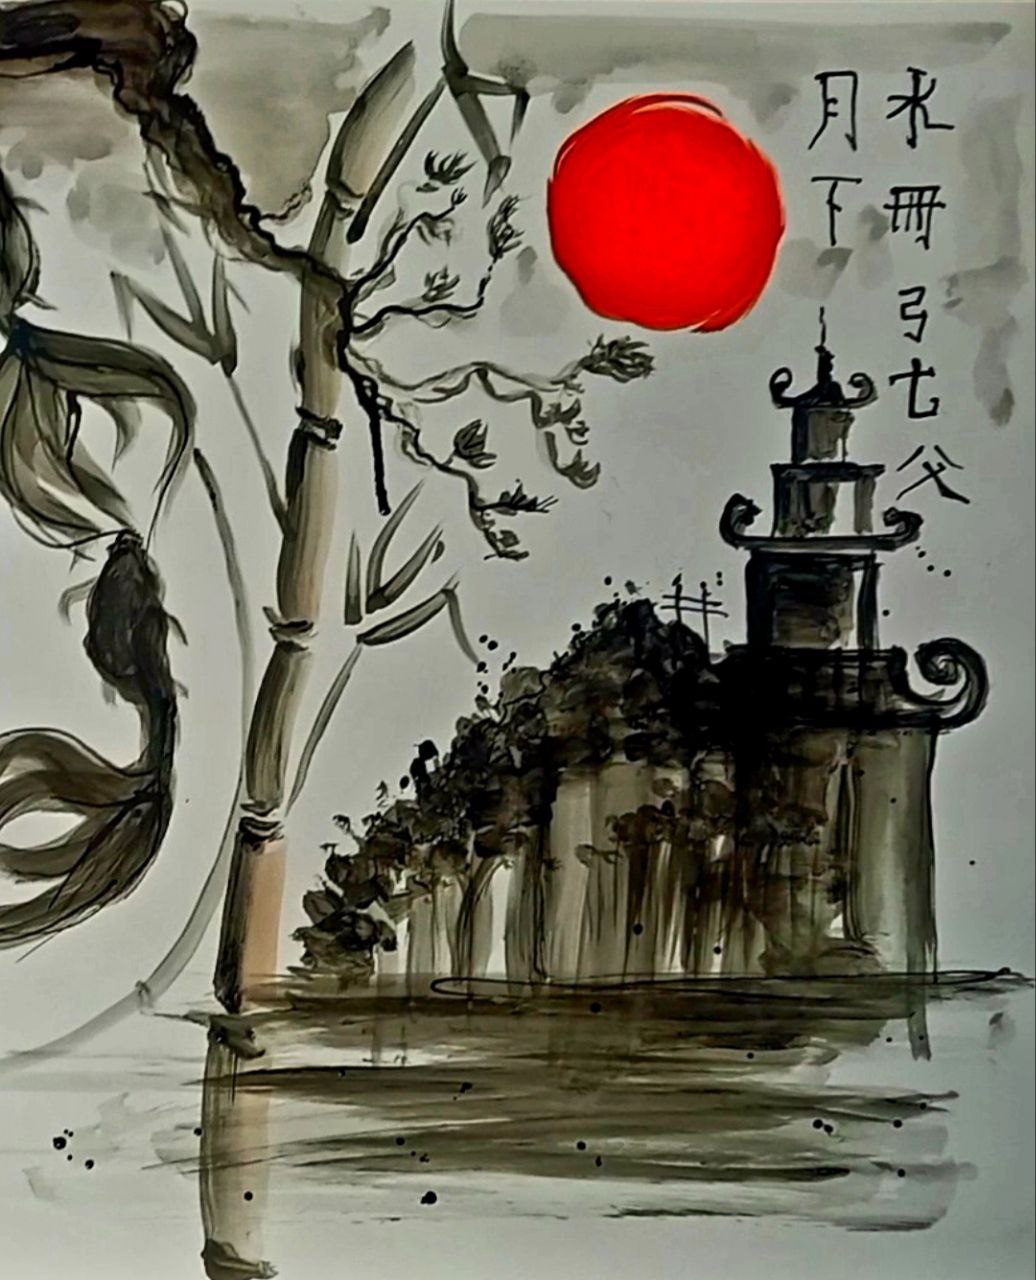 水冊弓亡父
月下